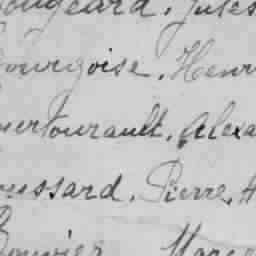 ougeard, Jules
ourgoise, Henr
uertourault, Alexa
oussard, Pierre, H
Bouvier Marce